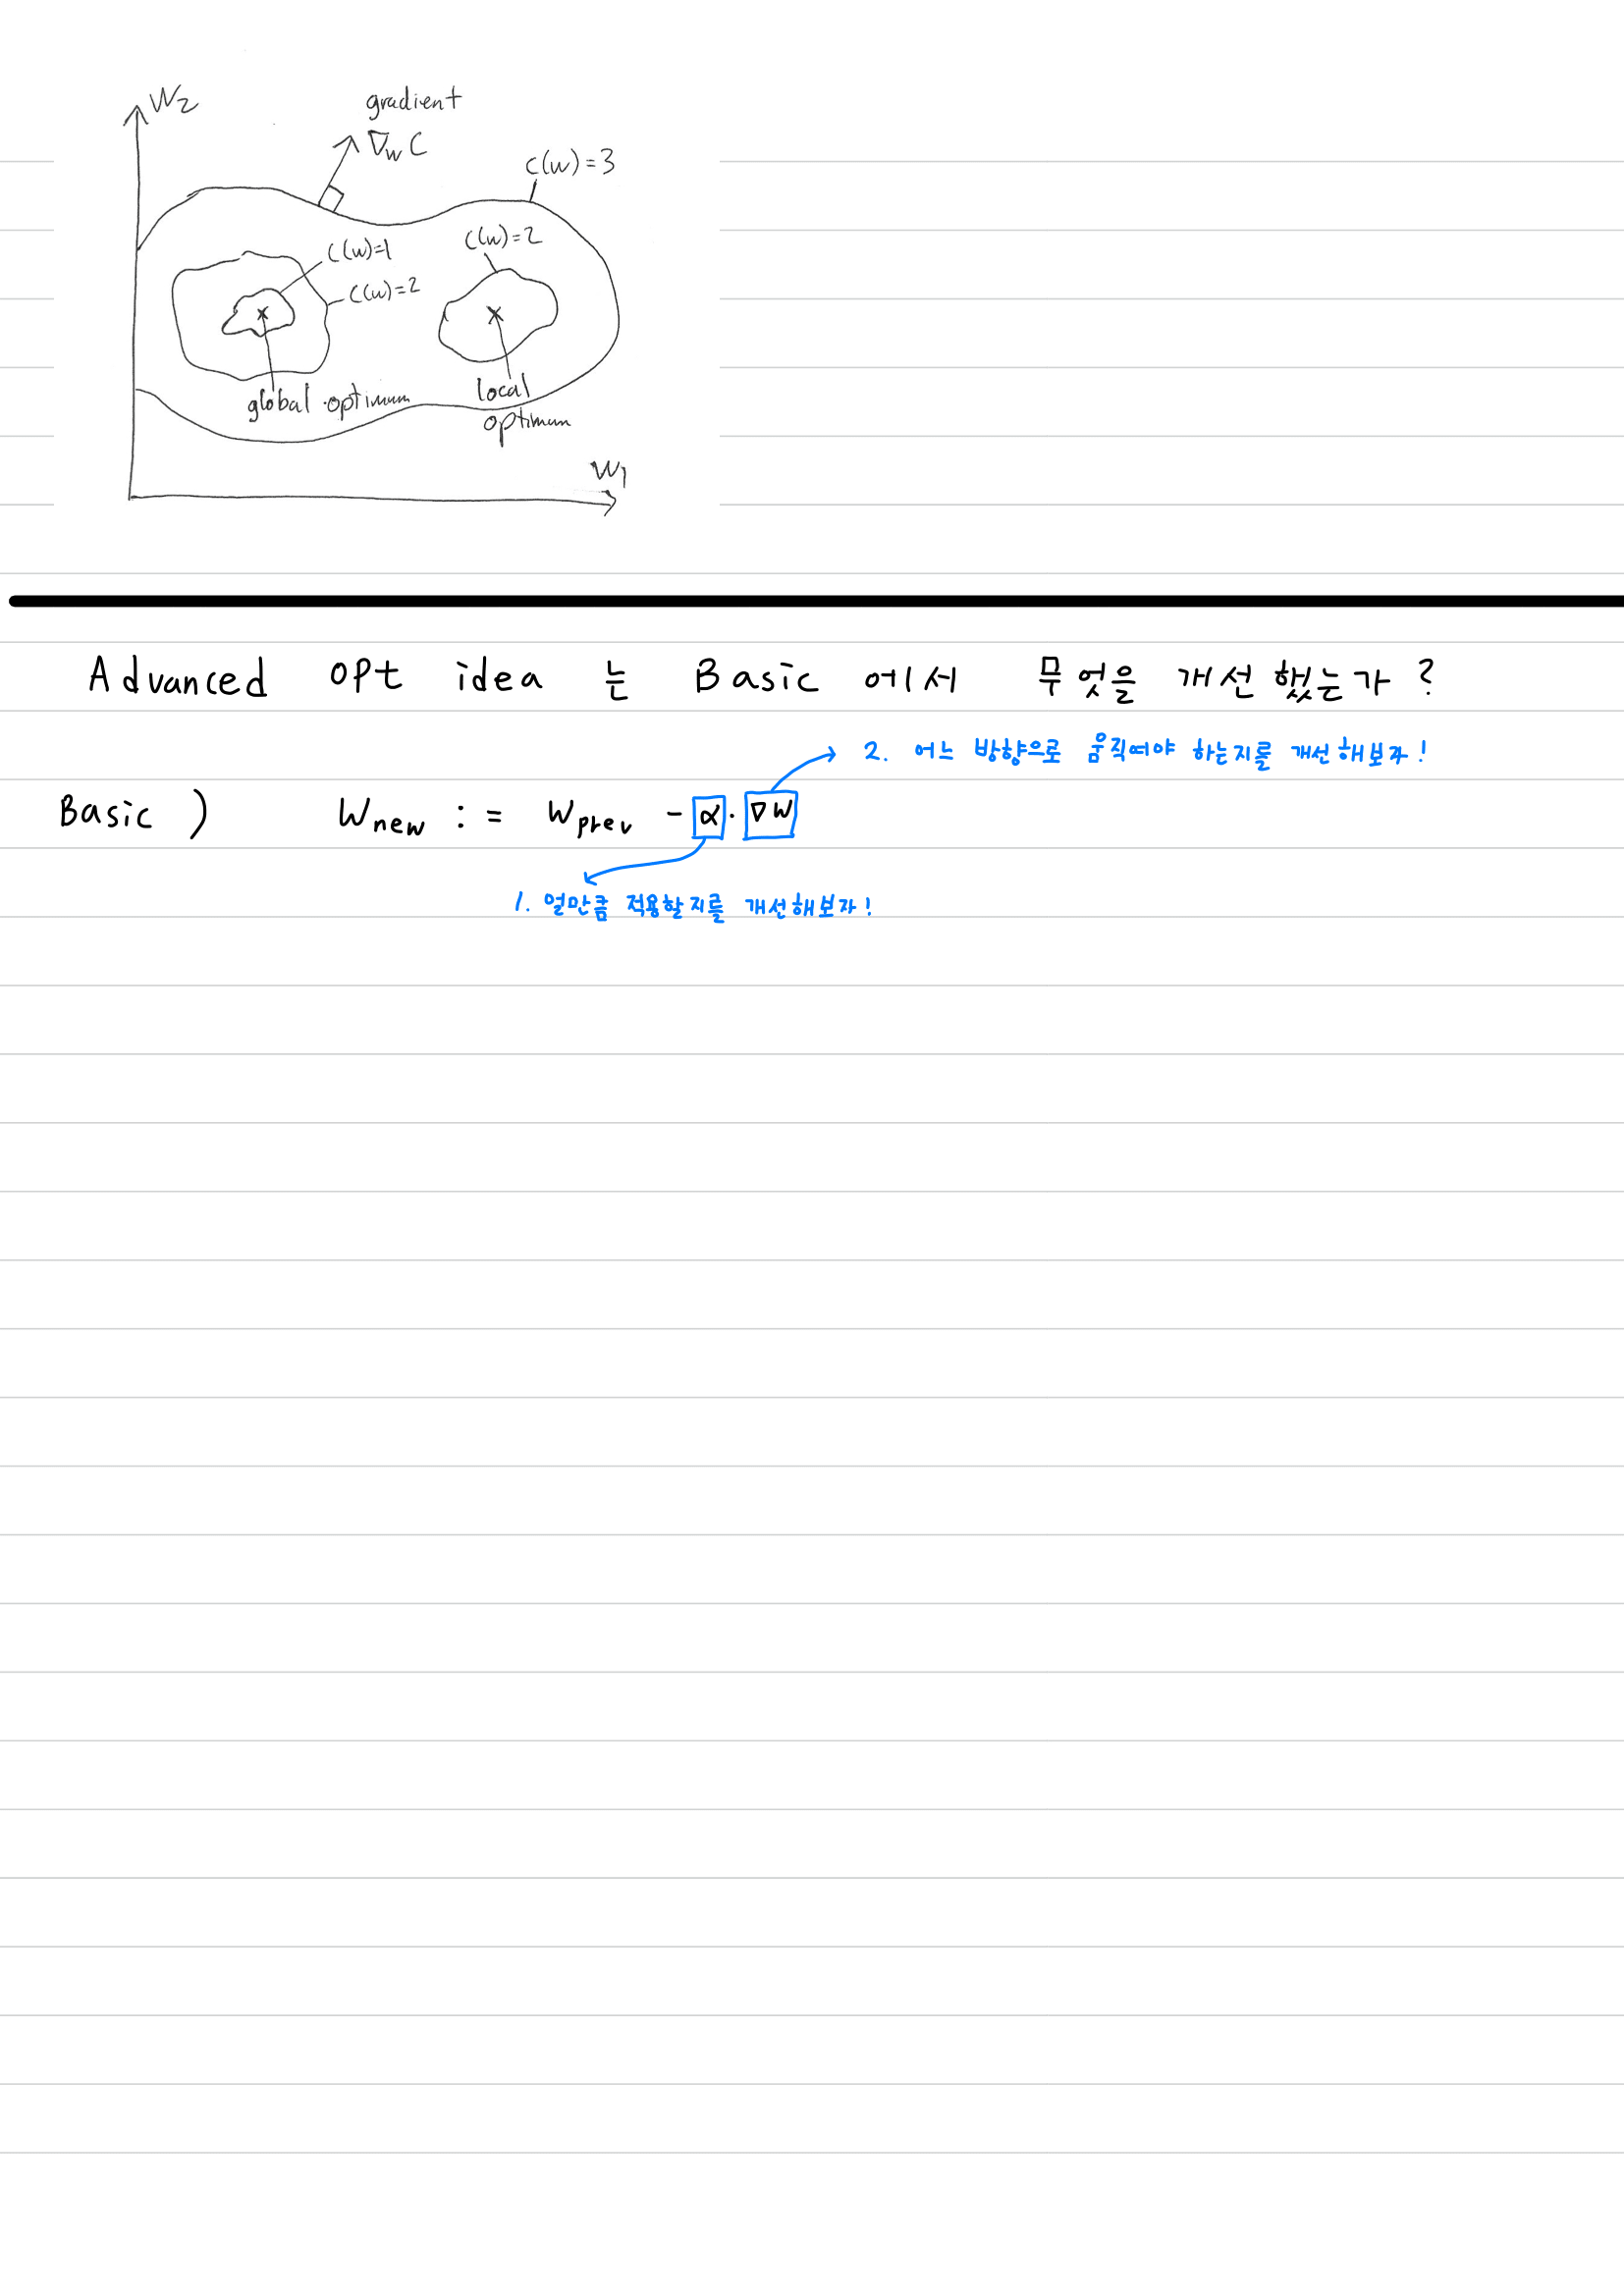 W2
gradient
∇w C
C(w)=3
C(w)=1
C(w)=2
C(w)=2
global optimum
local
optimum
W1
Advanced opt idea 는 Basic 에서 무엇을 개선했는가?
2. 어느 방향으로 움직여야 하는지를 개선해보자!
Basic ) Wnew := Wprev - α · ∇W
1. 얼만큼 적용할지를 개선해보자!